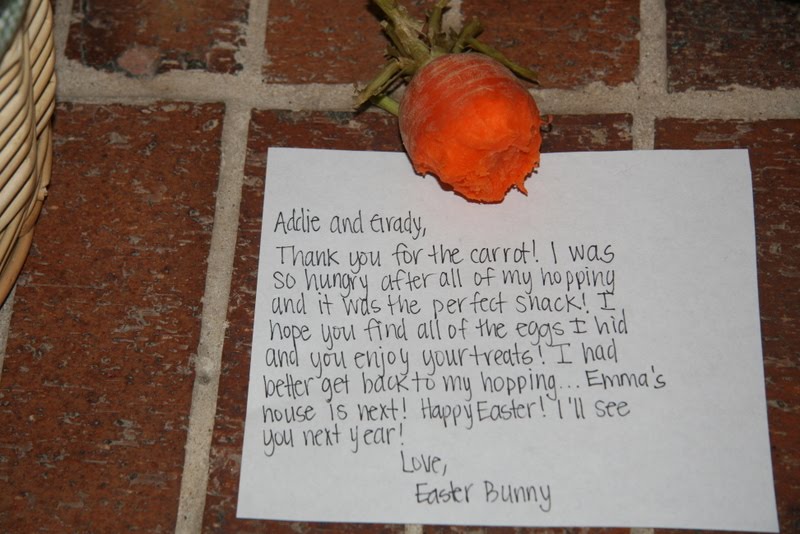 Addie and Grady,
Thank you for the carrot! I was
so hungry after all of my hopping
and it was the perfect snack! I
hope you find all of the eggs I hid
and you enjoy your treats! I had
better get back to my hopping... Emma's
house is next! Happy Easter! I'll see
you next year!
Love,
Easter Bunny